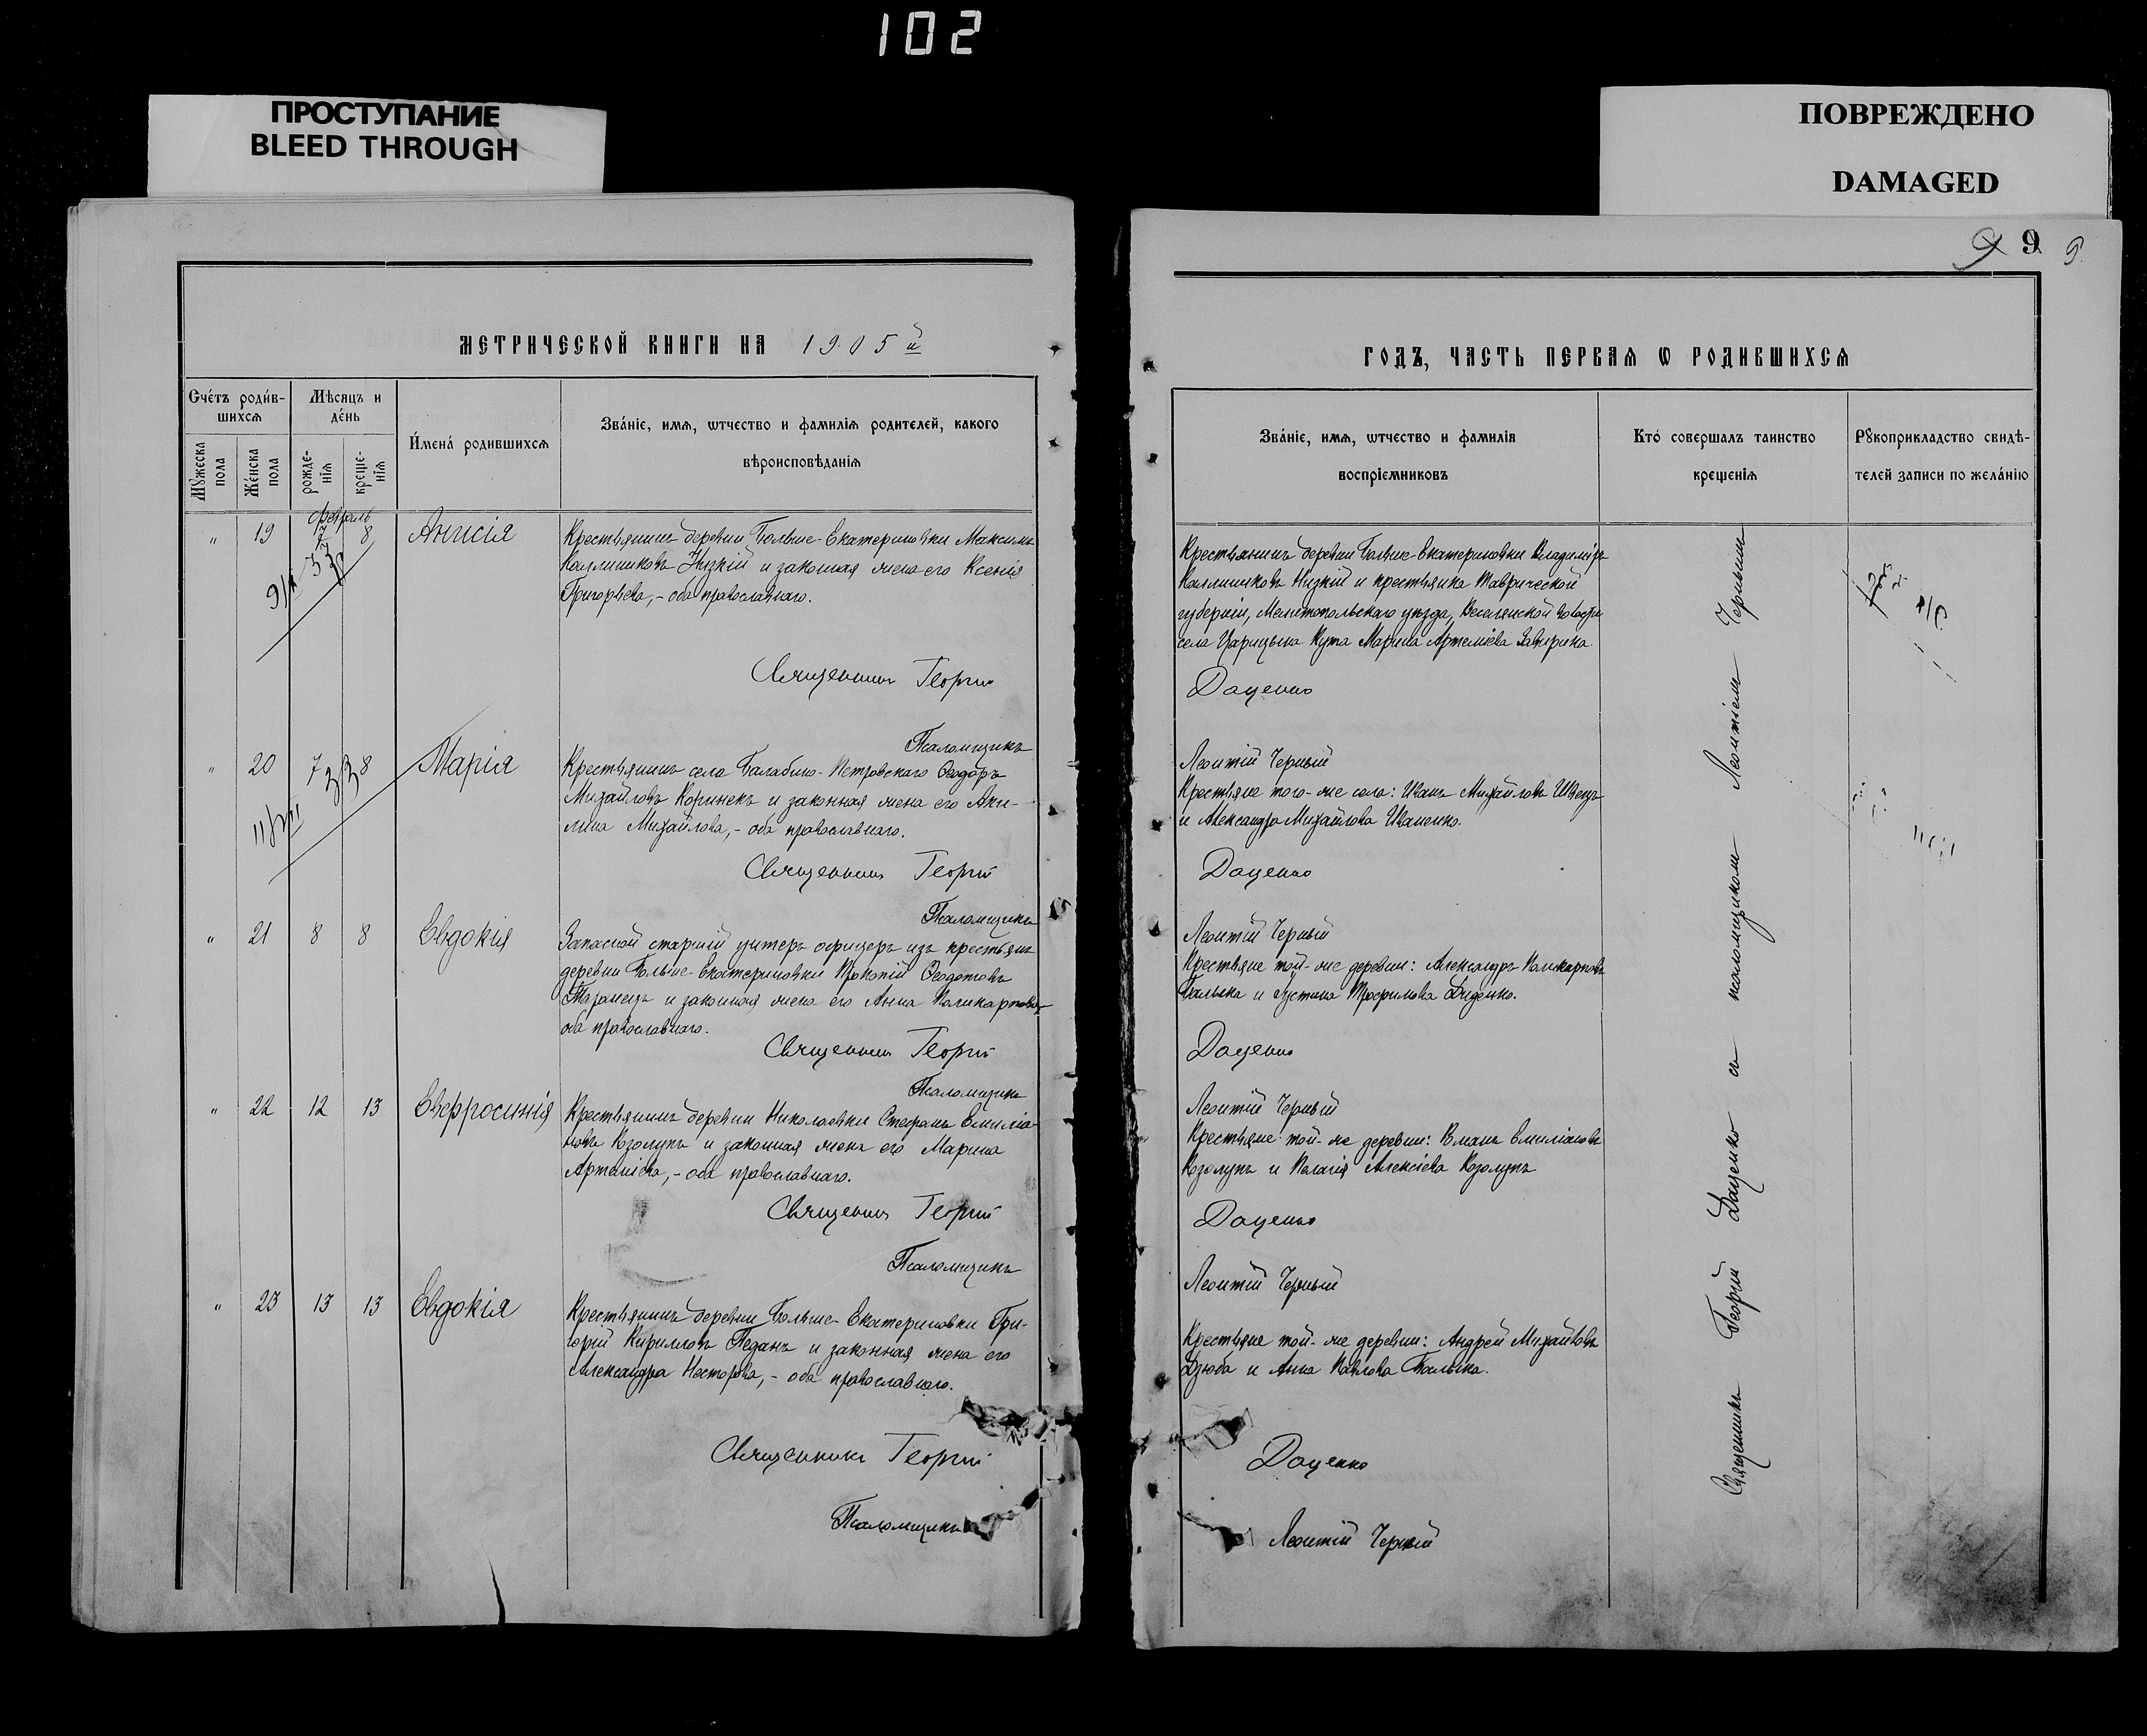 102
ПРОСТУПАНИЕ
BLEED THROUGH
ПОВРЕЖДЕНО
DAMAGED
9 9 9
МЕТРИЧЕСКОЙ КНИГИ НА 1905й
Счетъ родив-
шихсѧ
Мѣсяцъ и
день
Имена родившихсѧ
Званіе, имѧ, ѡтчество и фамиліѧ родителей, какого
вѣроисповѣданіѧ
Мꙋжеска
пола
Женска
пола
рожде-
ніѧ
креще-
ніѧ
Февраль
" 19 7 8 Анисія
Крестьянинъ деревни Больше-Екатериновки Максимъ
Каллиниковъ Низкій и законная жена его Ксенія
Григорьева, - оба православнаго.
Священникъ Георгій
Псаломщикъ
" 20 7 8 Марія
Крестьянинъ села Балабино-Петровскаго Ѳеодоръ
Михайловъ Коринекъ и законная жена его Аки-
лина Михайлова, - оба православнаго.
Священникъ Георгій
Псаломщикъ
" 21 8 8 Евдокія
Запасной старшій унтеръ офицеръ изъ крестьянъ
деревни Больше-Екатериновки Прокопій Ѳеодотовъ
и законная жена его Анна Поликарпова,
оба православнаго.
Священникъ Георгій
Псаломщикъ
" 22 12 13 Евфросинія
Крестьянинъ деревни Николаевки Стефанъ Емиліа-
новъ Козолупъ и законная жена его Марина
Артеміева, - оба православнаго.
Священникъ Георгій
Псаломщикъ
" 23 13 13 Евдокія
Крестьянинъ деревни Больше-Екатериновки Гри-
горій Кирилловъ Педанъ и законная жена его
Александра Несторова, - оба православнаго.
Священникъ Георгій
Псаломщикъ
ГОДЪ, ЧАСТЬ ПЕРВАѦ Ѡ РОДИВШИХСѦ
Званіе, имѧ, ѡтчество и фамиліѧ
воспріемниковъ
Кто совершалъ таинство
крещеніѧ
Рꙋкоприкладство свидѣ-
телей записи по желанію
Крестьянинъ деревни Больше-Екатериновки Владиміръ
Каллиниковъ Низкій и крестьянка Таврической
губерніи, Мелитопольскаго уѣзда, Веселянской волости
села Царицына Кута Марина Артеміева
Доценко
Леонтій Черный
Крестьяне того-же села: Иванъ Михайловъ Швецъ
и Александра Михайлова Иваненко.
Доценко
Леонтій Черный
Крестьяне той-же деревни: Александръ Поликарповъ
Палька и Іустина Трофимова Диденко.
Доценко
Леонтій Черный
Крестьяне той-же деревни: Романъ Емиліановъ
Козолупъ и Пелагія Алексіева Козолупъ
Доценко
Леонтій Черный
Крестьяне той-же деревни: Андрей Михайловъ
Дзюба и Анна Павлова Палька.
Доценко
Леонтій Черный
Священникъ Георгій Доценко съ псаломщикомъ Леонтіемъ Чернымъ